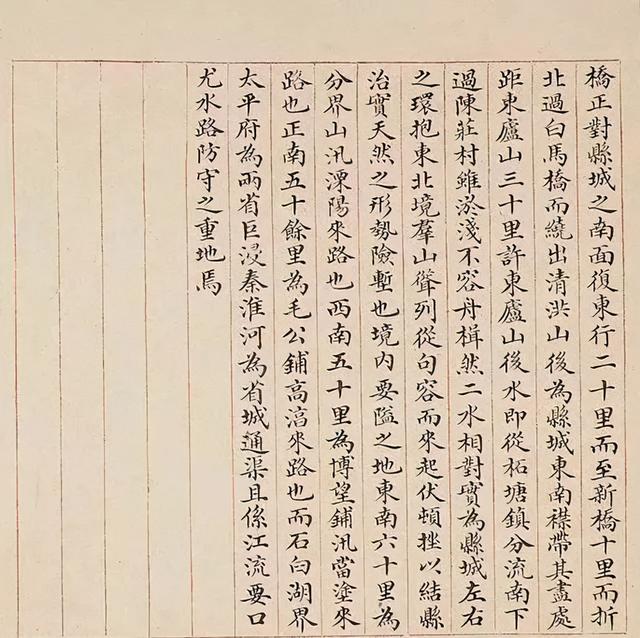 橋正對縣城之南面復東行二十里而至新橋十里而折
北過白馬橋而繞出清洪山後為縣城東南襟帶其盡處
距東廬山三十里許東廬山後水即從柘塘鎮分流南下
過陳莊村雖淤淺不容舟楫然二水相對實為縣城左右
之環抱東北境羣山聳列從句容而來起伏頓挫以結縣
治實天然之形勢險塹也境內要隘之地東南六十里為
分界山汛溧陽來路也西南五十里為博望鋪汛當塗來
路也正南五十餘里為毛公鋪高淳來路也而石臼湖界
太平府為兩省巨浸秦淮河為省城通渠且係江流要口
尤水路防守之重地焉